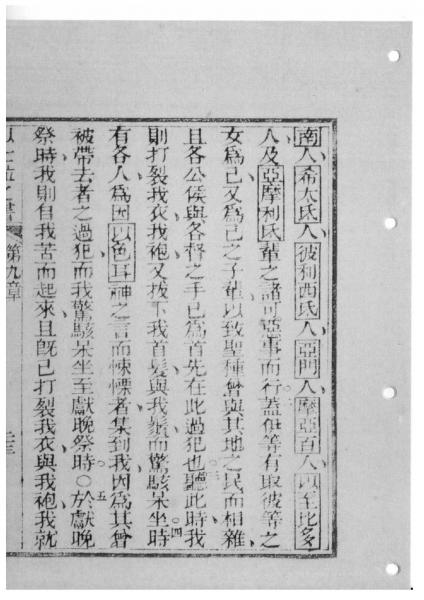 南人希太氏人彼利西氏人亞門人摩亞百人以至比多
人及亞摩利氏輩之諸可惡事而行蓋伊等有取彼等之
女為己又為己之子輩以致聖種曾與其地之民而相雜
且各公侯與各督之手已為首先在此過犯也聽此時我
則打裂我衣我袍又拔下我首髮與我鬚而驚駭呆坐時
有各人為因以色耳神之言而悚慄者集到我因為其曾
被帶去者之過犯而我驚駭呆坐至獻晚祭時○於獻晚
祭時我則自我苦而起來且既已打裂我衣與我袍我就
第九章
三
四
五